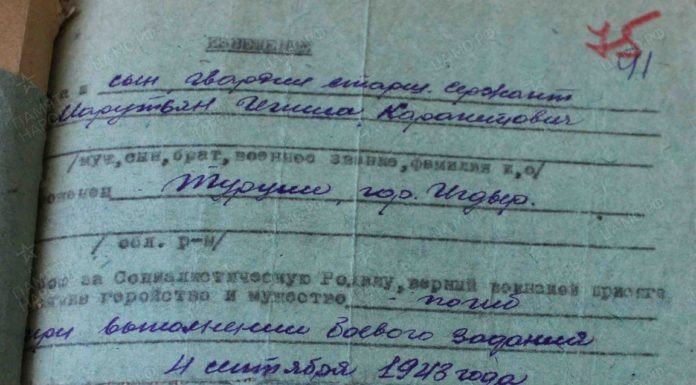 75
41
ИЗВЕЩЕНИЕ
сын, гвардии старш. сержант
Марутьян Чгиша Карапетович
/муж, сын, брат, военное звание, фамилия и, о/
Турции, гор. Игдыр.
/ обл. р-н/
бою за Социалистическую Родину, верный воинской присяге
геройство и мужество погиб
при выполнении боевого задания
4 сентября 1943 года